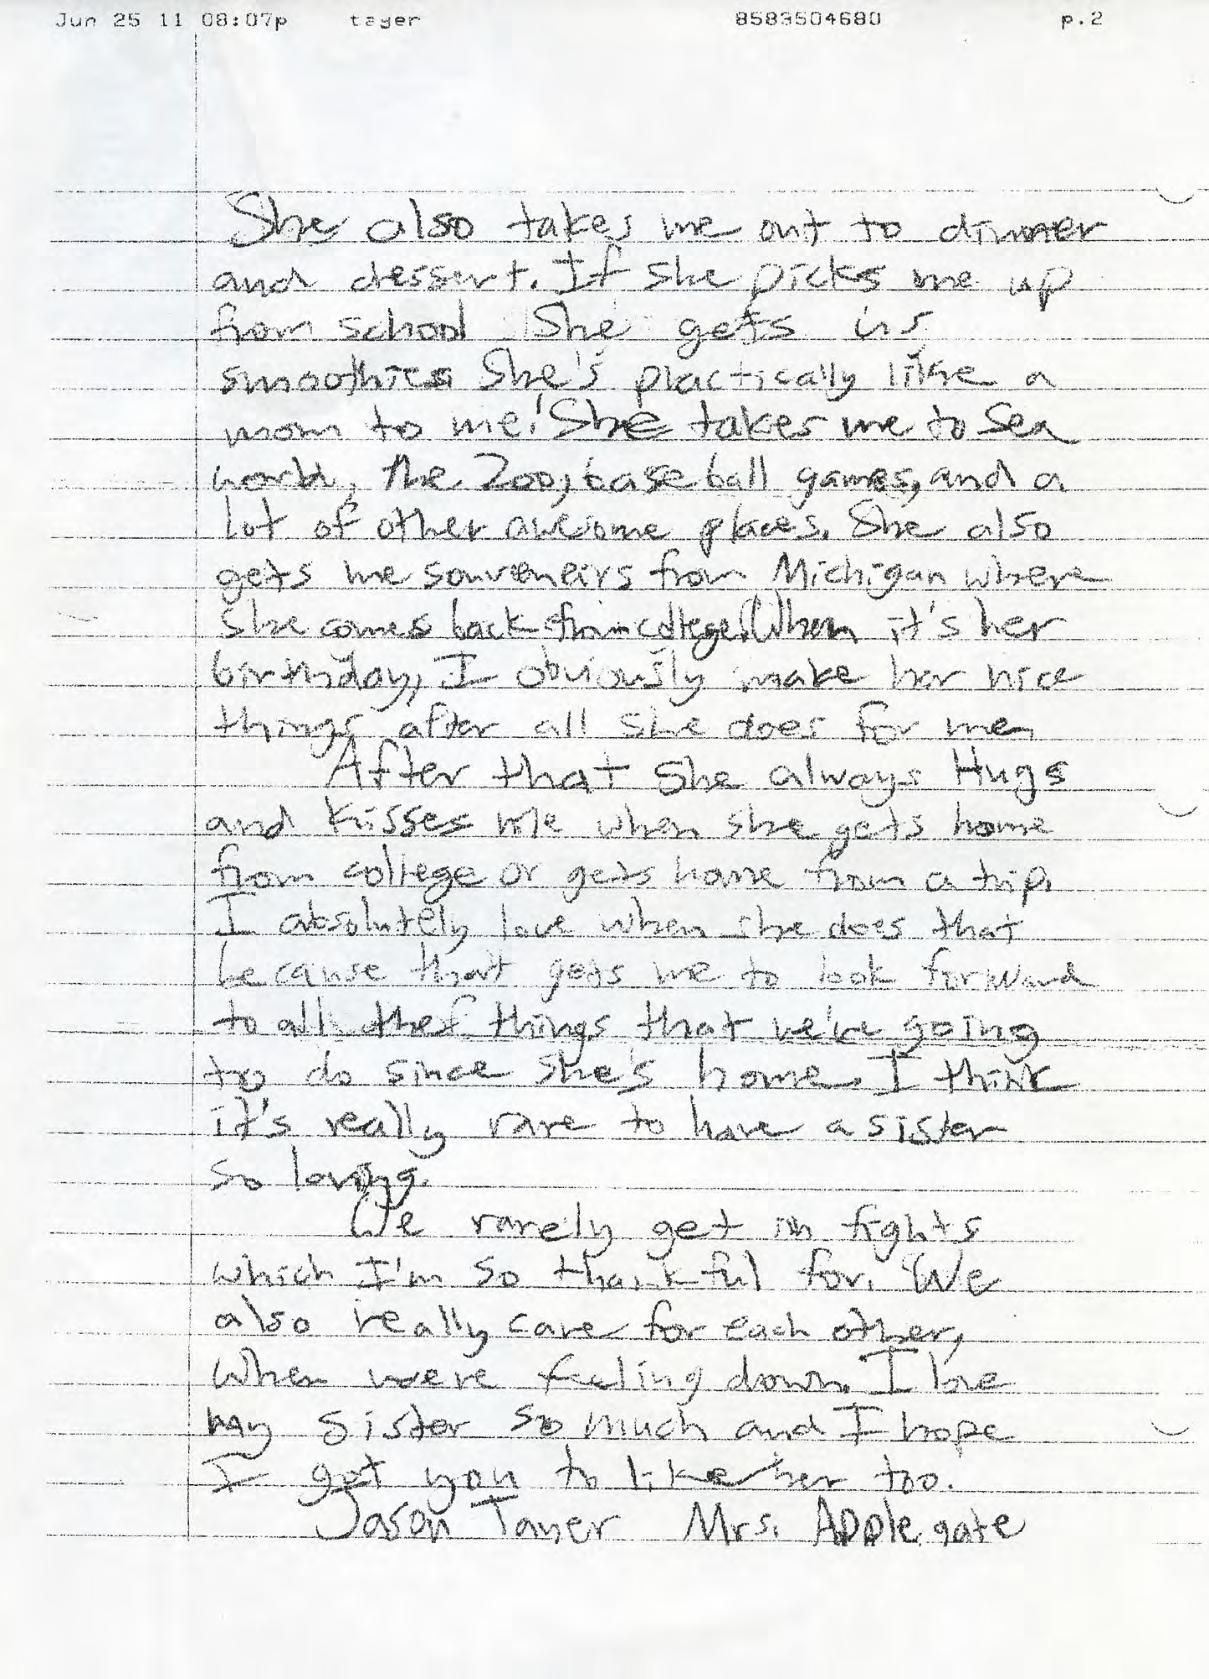 Jun 25 11 08:07p tayer 8583504680 p.2
She also takes me out to dinner
and dessert. If she picks me up
from school she gets us
smoothies. She's practically like a
mom to me! She takes me to Sea
world, the Zoo, baseball games, and a
lot of other awesome places. She also
gets me souveneirs from Michigan where
she comes back from college. When it's her
birthday, I obviously make her nice
things after all she does for me.
After that she always Hugs
and kisses me when she gets home
from college or gets home from a trip.
I absolutely love when she does that
because that gets me to look forward
to all the things that we're going
to do since she's home. I think
it's really rare to have a sister
so loving.
We rarely get in fights
which I'm so thankful for. We
also really care for each other,
when we're feeling down. I love
my sister so much and I hope
I got you to like her too.
Jason Tayer Mrs. Applegate